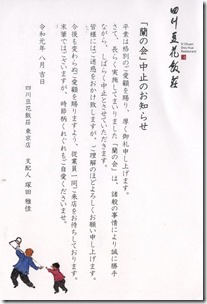 四川豆花飯荘
「蘭の会」中止のお知らせ
平素は格別のご愛顧を賜り、厚く御礼申し上げます。
さて、長らく実施してまいりました「蘭の会」は、諸般の事情により誠に勝手
ながら、しばらく中止とさせていただきます。
皆様にはご迷惑をおかけ致しますが、ご理解のほどよろしくお願い申し上げます。
今後も変わらぬご愛顧を賜りますよう、従業員一同ご来店をお待ちしております。
末筆ではございますが、時節柄くれぐれもご自愛くださいませ。
令和元年 八月 吉日
四川豆花飯荘 東京店
支配人 塚田 雅佳